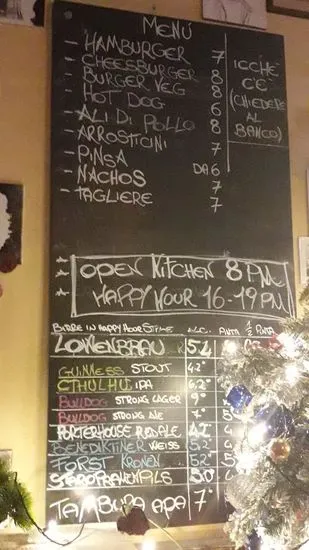 MENÚ
- HAMBURGER 7
- CHEESBURGER 8
- BURGER VEG 8
- HOT DOG 6
- ALI DI POLLO 8
- ARROSTICINI 7
- PINSA DA 6
- NACHOS 7
- TAGLIERE 7
ICCHÉ
C'È
(CHIEDERE
AL
BANCO)
OPEN KITCHEN 8 PM
HAPPY HOUR 16-19 PM
BIRRE IN HAPPY HOUR ALC. PINTA 1/2 PINTA
LOWENBRAU 5.2
GUINNESS STOUT 4.2°
CTHULHU IPA 6,2°
BULLDOG STRONG LAGER 9°
BULLDOG STRONG ALE 7°
PORTERHOUSE RED ALE 4.2°
BENEDIKTINER WEISS 5.2°
FORST KRONEN 5.2°
STAROPRAMEN PILS 5.0°
TAMBURA APA 7°